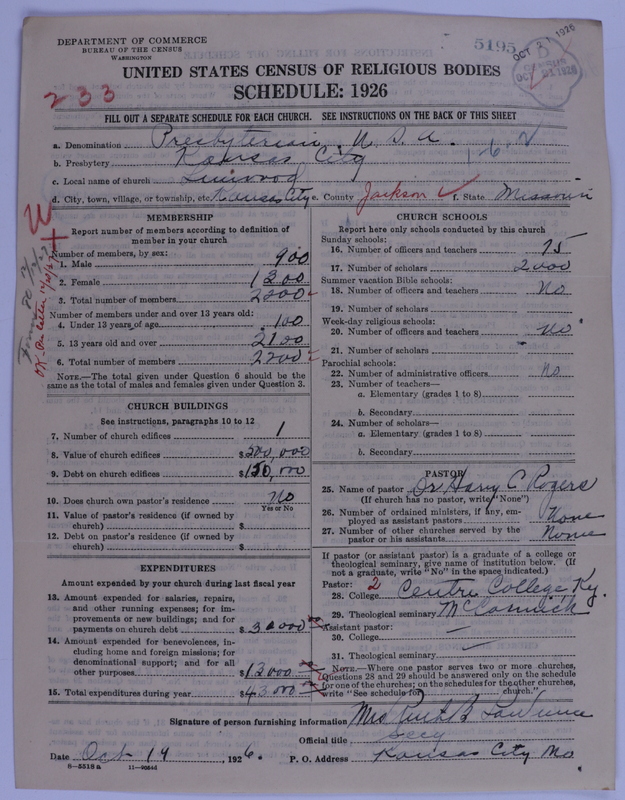 DEPARTMENT OF COMMERCE
BUREAU OF THE CENSUS
WASHINGTON
5195
OCT 1926
233
UNITED STATES CENSUS OF RELIGIOUS BODIES
SCHEDULE: 1926
FILL OUT A SEPARATE SCHEDULE FOR EACH CHURCH. SEE INSTRUCTIONS ON THE BACK OF THIS SHEET
a. Denomination Presbyterian U. S. A.
b. Presbytery Kansas City
1-6.
c. Local name of church Linwood
d. City, town, village, or township, etc. Kansas City e. County Jackson f. State Missouri
MEMBERSHIP
Report number of members according to definition of
member in your church
Number of members, by sex:
1. Male 900
2. Female 1300
3. Total number of members 2200
Number of members under and over 13 years old:
4. Under 13 years of age 100
5. 13 years old and over 2100
6. Total number of members 2200
NOTE.—The total given under Question 6 should be
same as the total of males and females given under Question 3.
CHURCH BUILDINGS
See instructions, paragraphs 10 to 12
7. Number of church edifices 1
8. Value of church edifices $500,000
9. Debt on church edifices $150,000
10. Does church own pastor's residence No
Yes or No
11. Value of pastor's residence (if owned by
church) $
12. Debt on pastor's residence (if owned by
church) $
EXPENDITURES
Amount expended by your church during last fiscal year
13. Amount expended for salaries, repairs,
and other running expenses; for im-
provements or new buildings; and for
payments on church debt $30000
14. Amount expended for benevolences, in-
cluding home and foreign missions; for
denominational support; and for all
other purposes $13000
15. Total expenditures during year $43000
CHURCH SCHOOLS
Report here only schools conducted by this church
Sunday schools:
16. Number of officers and teachers 75
17. Number of scholars 2000
Summer vacation Bible schools:
18. Number of officers and teachers No
19. Number of scholars
Week-day religious schools:
20. Number of officers and teachers No
21. Number of scholars
Parochial schools:
22. Number of administrative officers No
23. Number of teachers—
a. Elementary (grades 1 to 8)
b. Secondary
24. Number of scholars—
a. Elementary (grades 1 to 8)
b. Secondary
PASTOR
25. Name of pastor Dr Harry C Rogers
(If church has no pastor, write "None")
26. Number of ordained ministers, if any, em-
ployed as assistant pastors None
27. Number of other churches served by the
pastor or his assistants None
If pastor (or assistant pastor) is a graduate of a college or
theological seminary, give name of institution below. (If
not a graduate, write "No" in the space indicated.)
Pastor: 2
28. College Centre College Ky.
29. Theological seminary McCormick
Assistant pastor:
30. College —
31. Theological seminary —
NOTE.—Where one pastor serves two or more churches,
Questions 28 and 29 should be answered only on the schedule
for one of the churches; on the schedules for the other churches,
write "See schedule for church."
Signature of person furnishing information Mrs B Lawrence
Official title Secy
Date Oct 14 1926. P. O. Address Kansas City Mo
8—5518 a